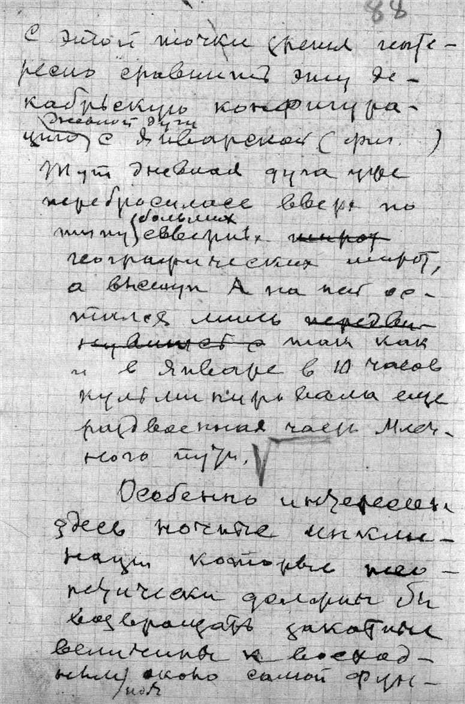 88
с этой точки зрения инте-
ресно сравнить эту де-
кабрьскую конфигура-
дневной дуги
цию с январской (фиг. )
Тут дневная дуга уже
перебросилась вверх по
больших
типу северных широт
географических широт,
а выступ А на ней ос-
тался лишь передви-
нувшись а так как
и в январе в 10 часов
кульминировала еще
раздвоенная часть Млеч-
ного пути.
Особенно интересен
здесь ночные инкли-
нации которые тео-
ретически должны бы
возвращать закатные
величины к восход-
ным около самой фун-